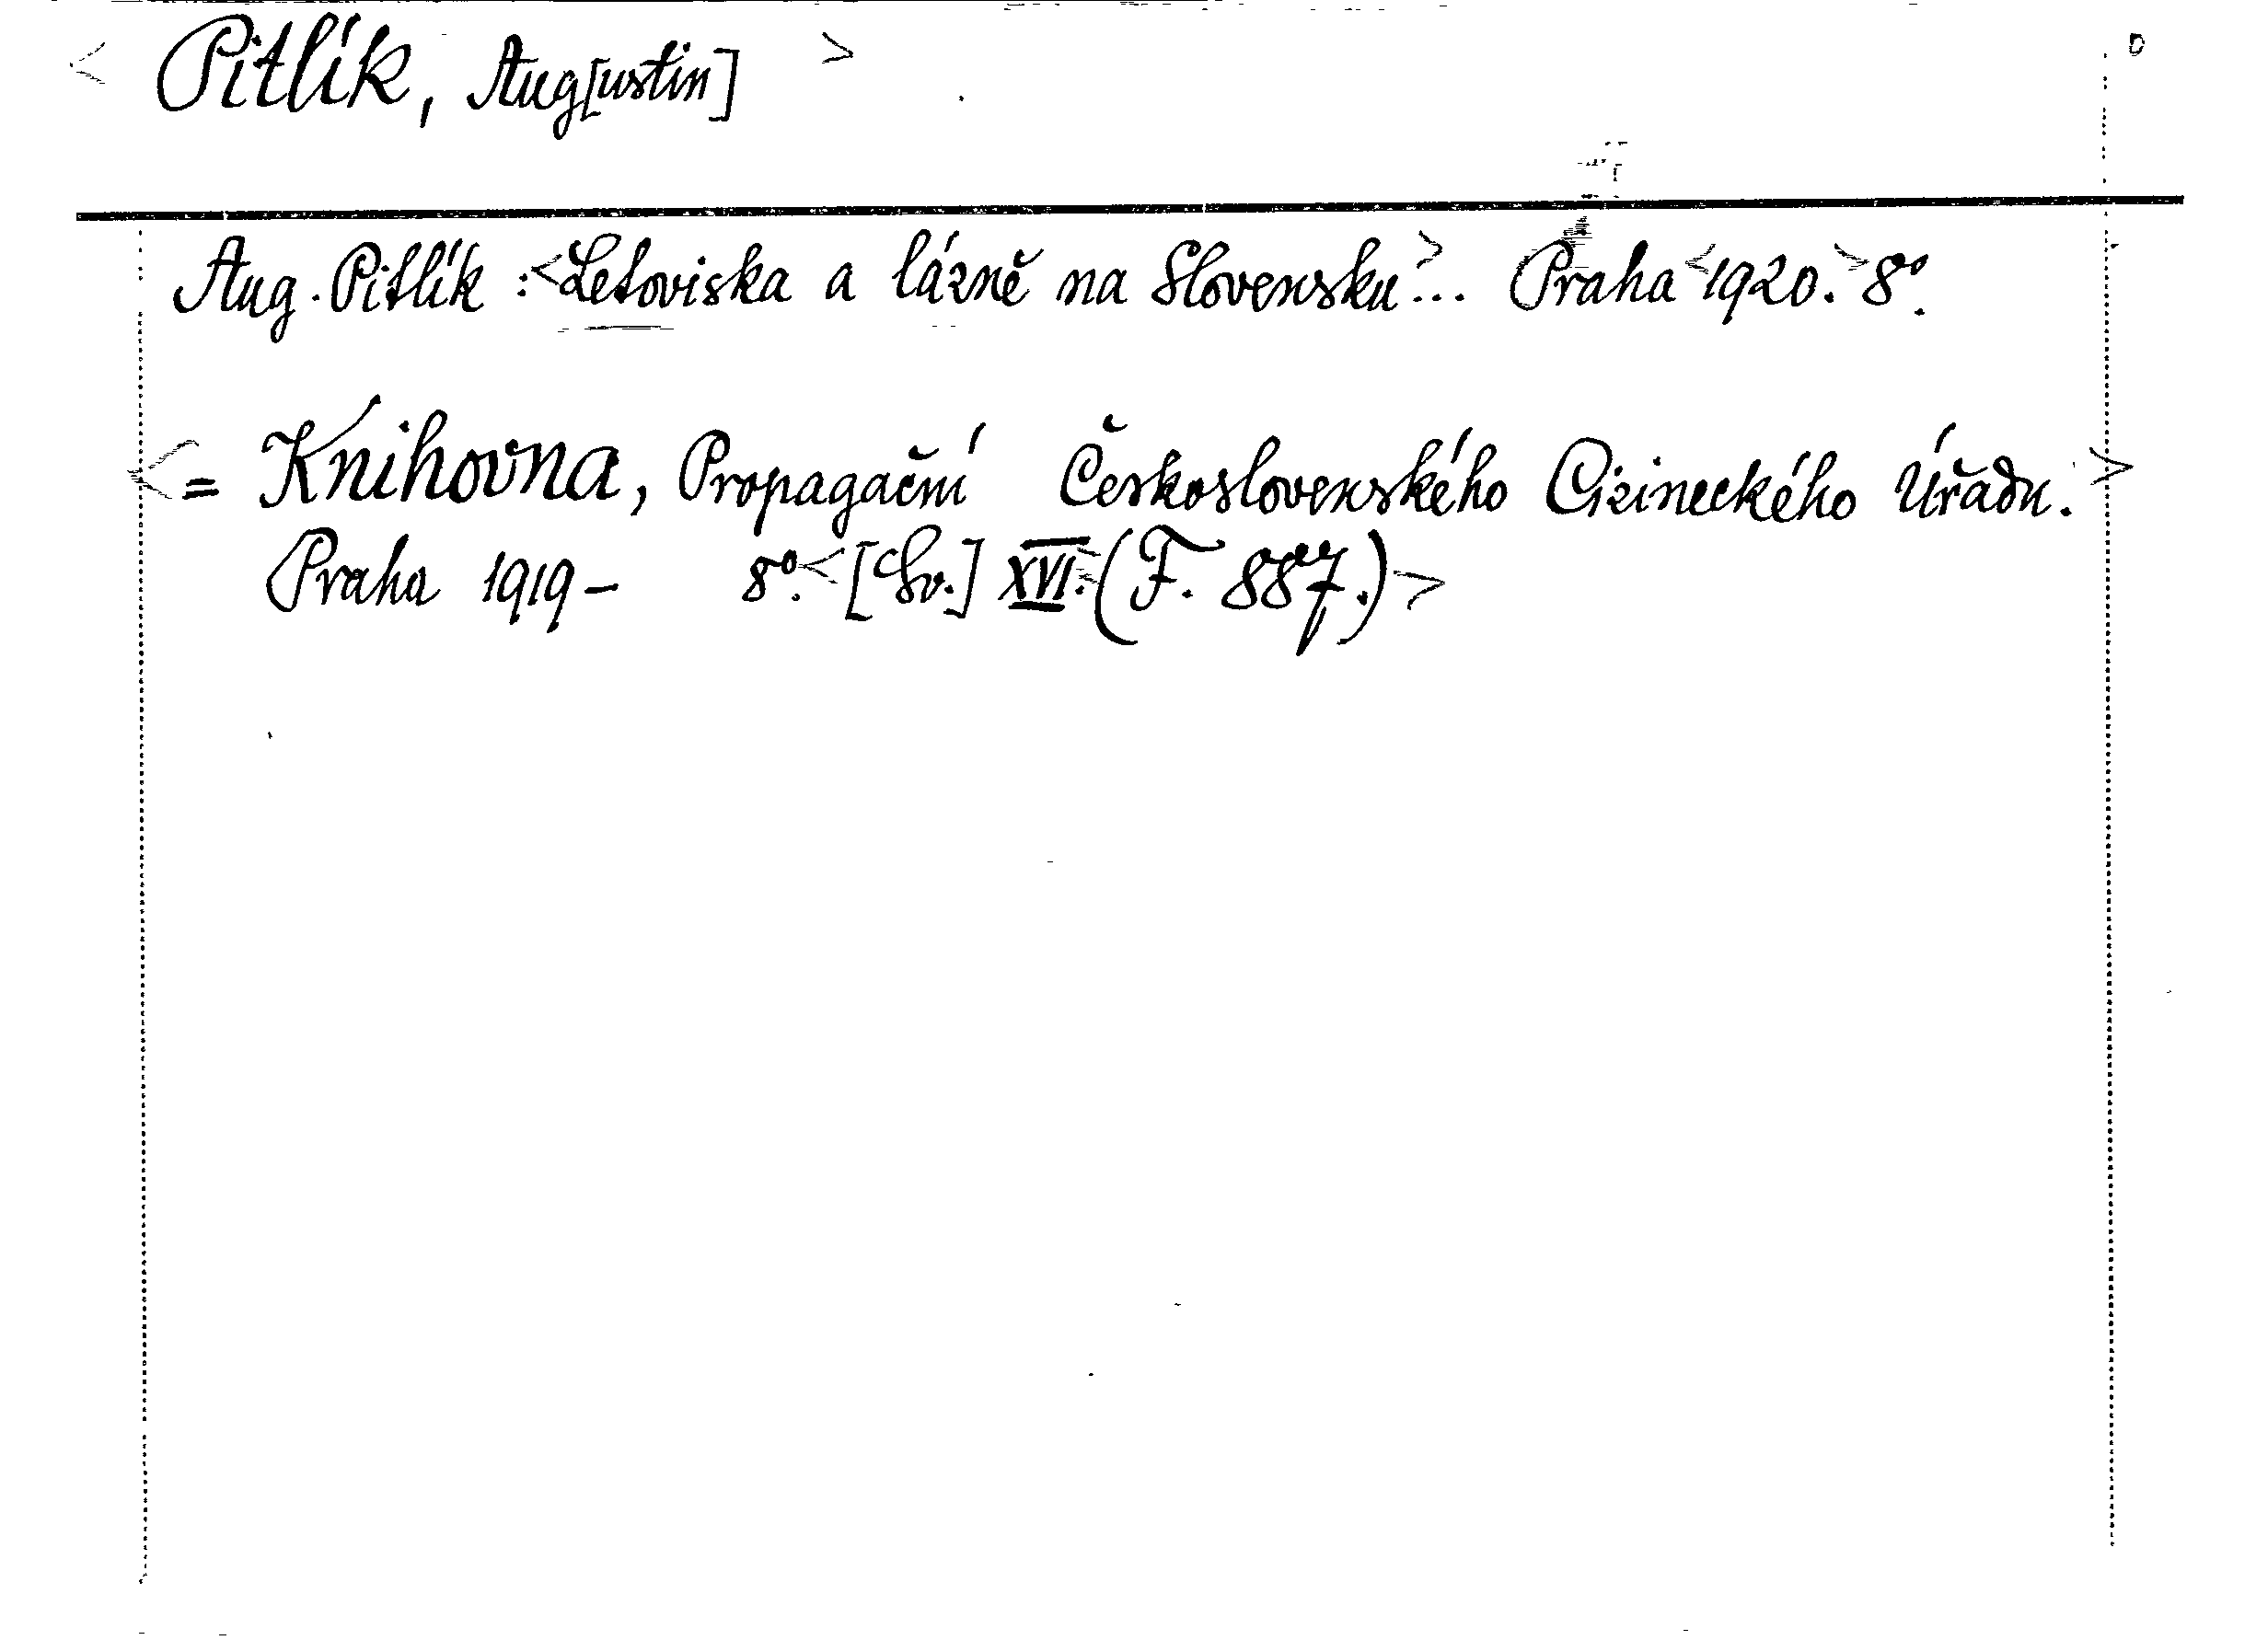 < Pitlík, Aug[ustin] >
Aug. Pitlík :<Letoviska a lázně na Slovensku>... Praha <1920.> 8º.
<= Knihovna, Propagační Československého Cizineckého Úřadu.>
Praha 1919 – 8º.<[Sv.] XVI.>(F. 887.)>